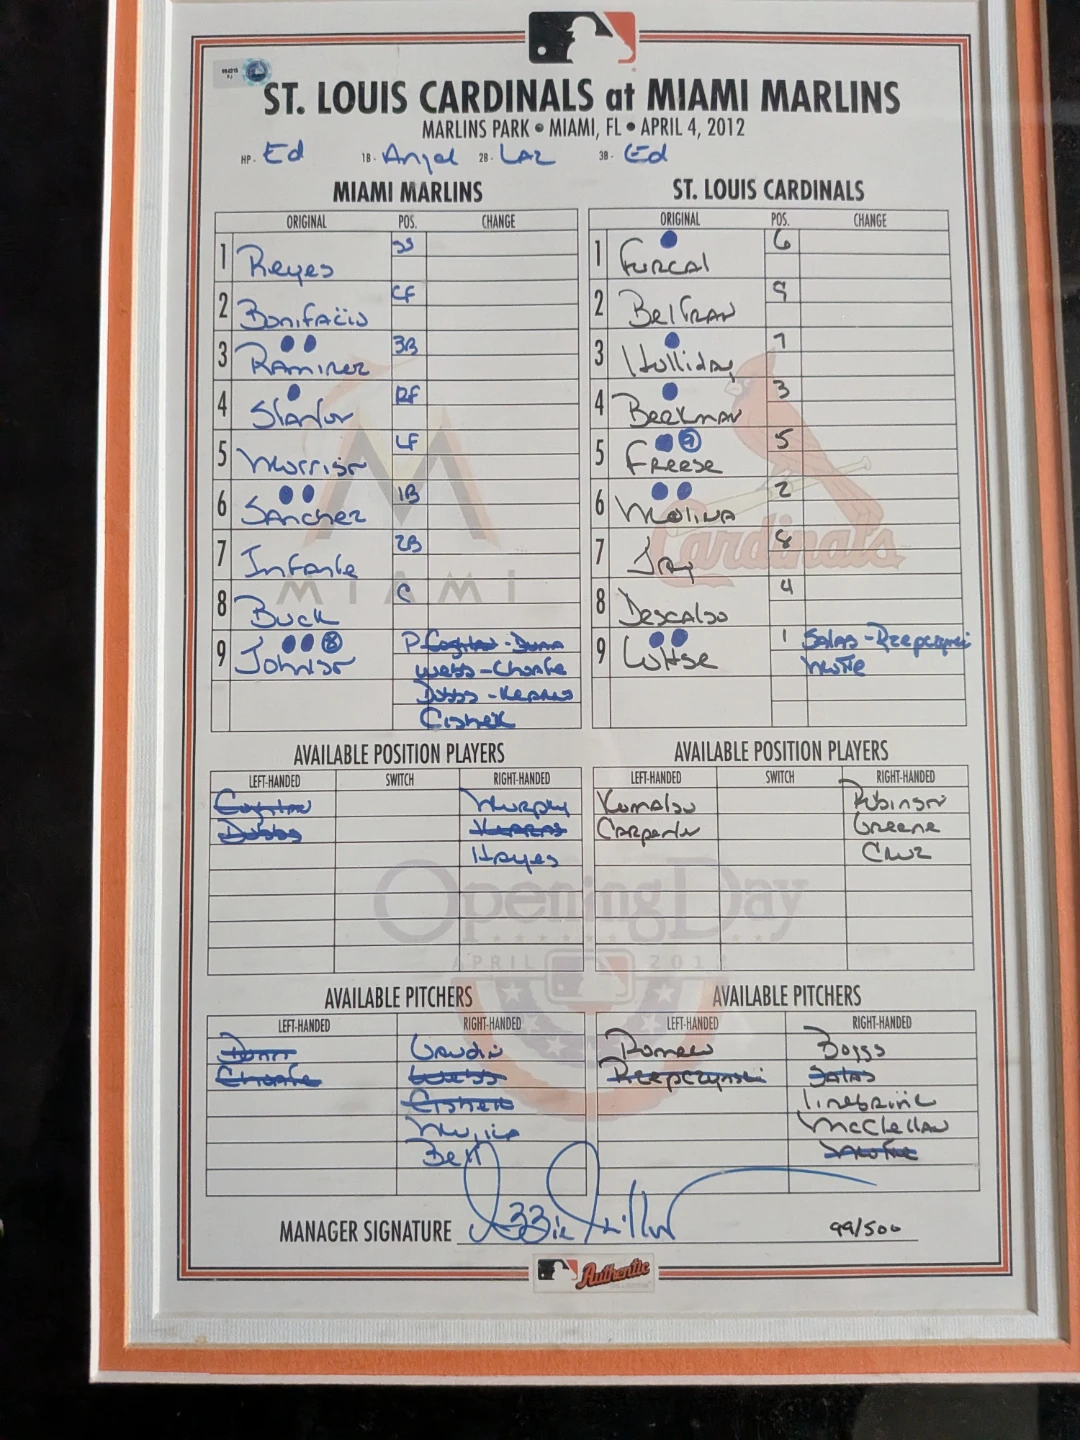 ST. LOUIS CARDINALS at MIAMI MARLINS
MARLINS PARK • MIAMI, FL • APRIL 4, 2012
HP- Ed 1B- Angel 2B- Laz 3B- Ed
MIAMI MARLINS
ORIGINAL POS. CHANGE
1 Reyes SS
2 Bonifacio CF
3 Ramirez 3B
4 Stanton RF
5 Morrison LF
6 Sanchez 1B
7 Infante 2B
8 Buck C
9 Johnson P Coghlan - Dunn
Webb - Choate
Dobbs - Kearns
Cishek
ST. LOUIS CARDINALS
ORIGINAL POS. CHANGE
1 Furcal 6
2 Beltran 9
3 Holliday 7
4 Berkman 3
5 Freese 5
6 Molina 2
7 Jay 8
8 Descalso 4
9 Lohse 1 Salas - Rzepczynski
Motte
Cardinals
MIAMI
AVAILABLE POSITION PLAYERS
LEFT-HANDED SWITCH RIGHT-HANDED
Coghlan Murphy
Dobbs Kearns
Hayes
AVAILABLE POSITION PLAYERS
LEFT-HANDED SWITCH RIGHT-HANDED
Komatsu Robinson
Carpenter Greene
Cruz
Opening Day
APRIL 2012
AVAILABLE PITCHERS
LEFT-HANDED RIGHT-HANDED
Dunn Gaudin
Choate Webb
Cishek
Mujica
Bell
AVAILABLE PITCHERS
LEFT-HANDED RIGHT-HANDED
Romero Boggs
Rzepczynski Salas
Linebrink
McClellan
Motte
MANAGER SIGNATURE Ozzie Guillen 99/500
Authentic